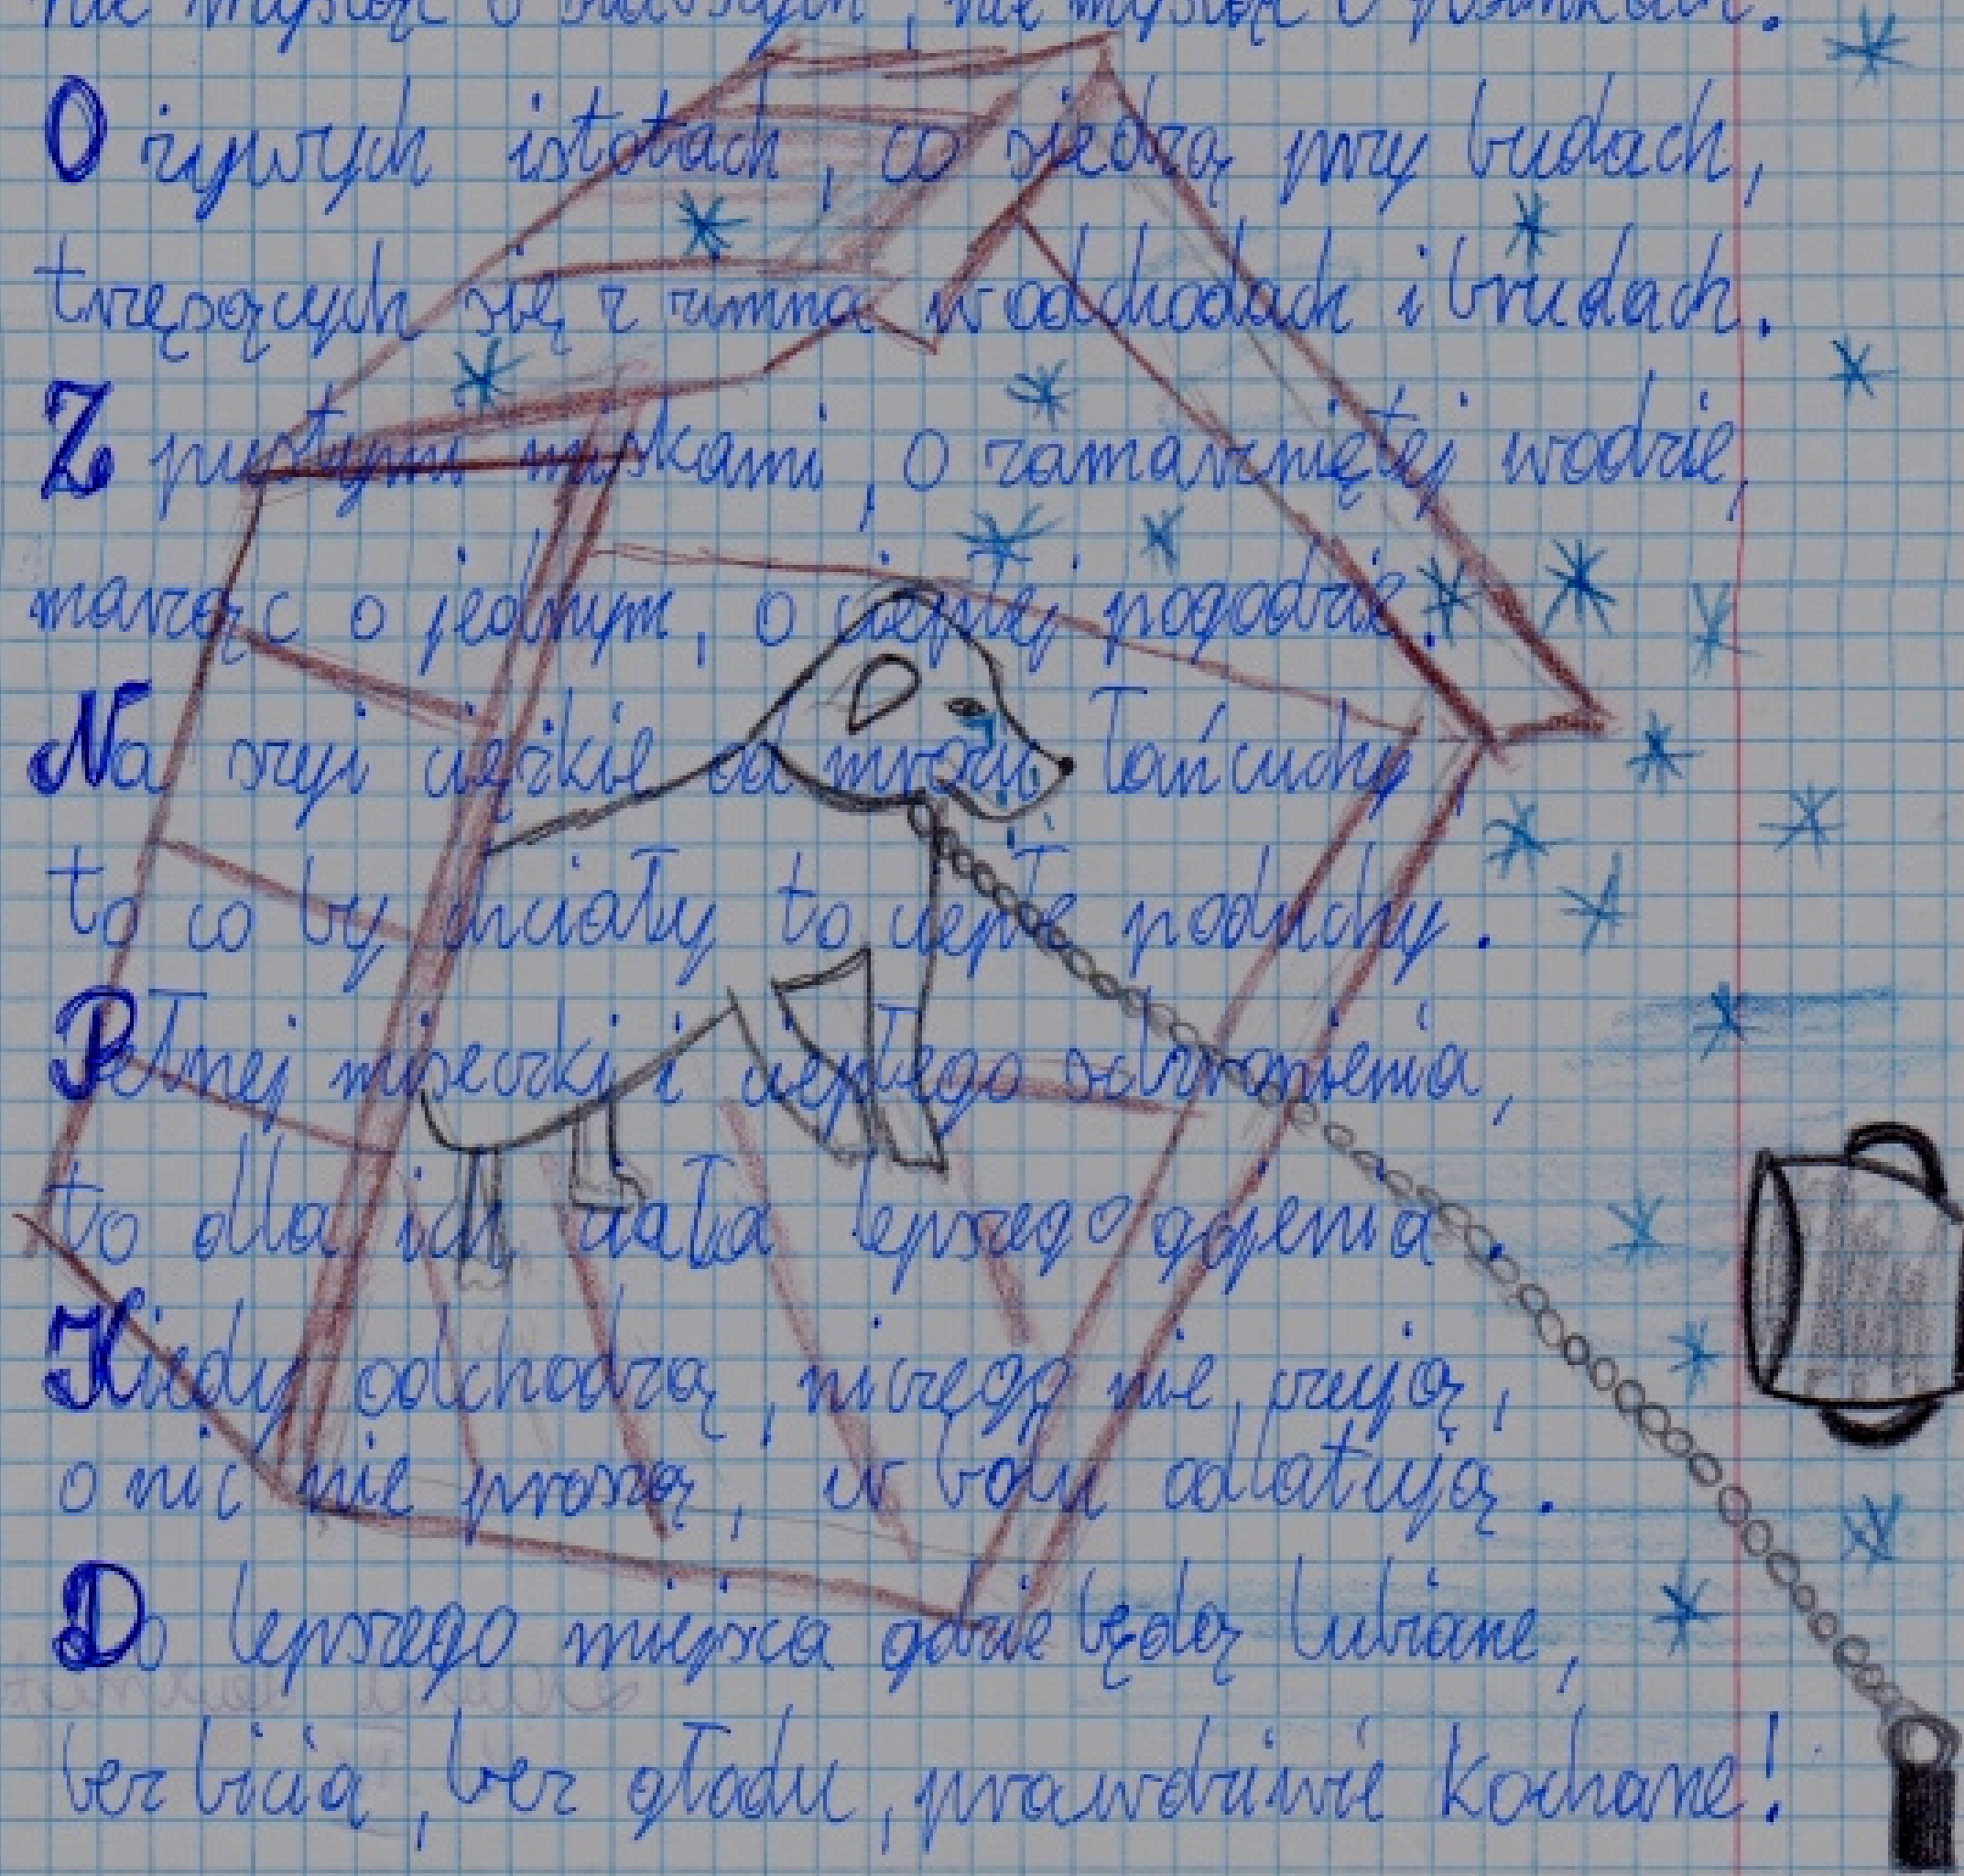 nie myślą o słabszych, nie myślą o psinkach.
O żywych istotach, co siedzą przy budach,
trzęsących się z zimna w odchodach i brudach.
Z pustymi miskami, o zamarzniętej wodzie,
marząc o jednym, o cieplej pogodzie.
Na szyi ciężkie od mrozu łańcuchy
to co by chciały to ciepłe poduchy.
Pełnej miseczki i ciepłego schronienia,
to dla ich ciała lepszego gojenia.
Kiedy odchodzą, niczego nie czują,
o nic nie proszą, w bólu odlatują.
Do lepszego miejsca gdzie będą lubiane,
bez bicia, bez głodu, prawdziwie kochane!